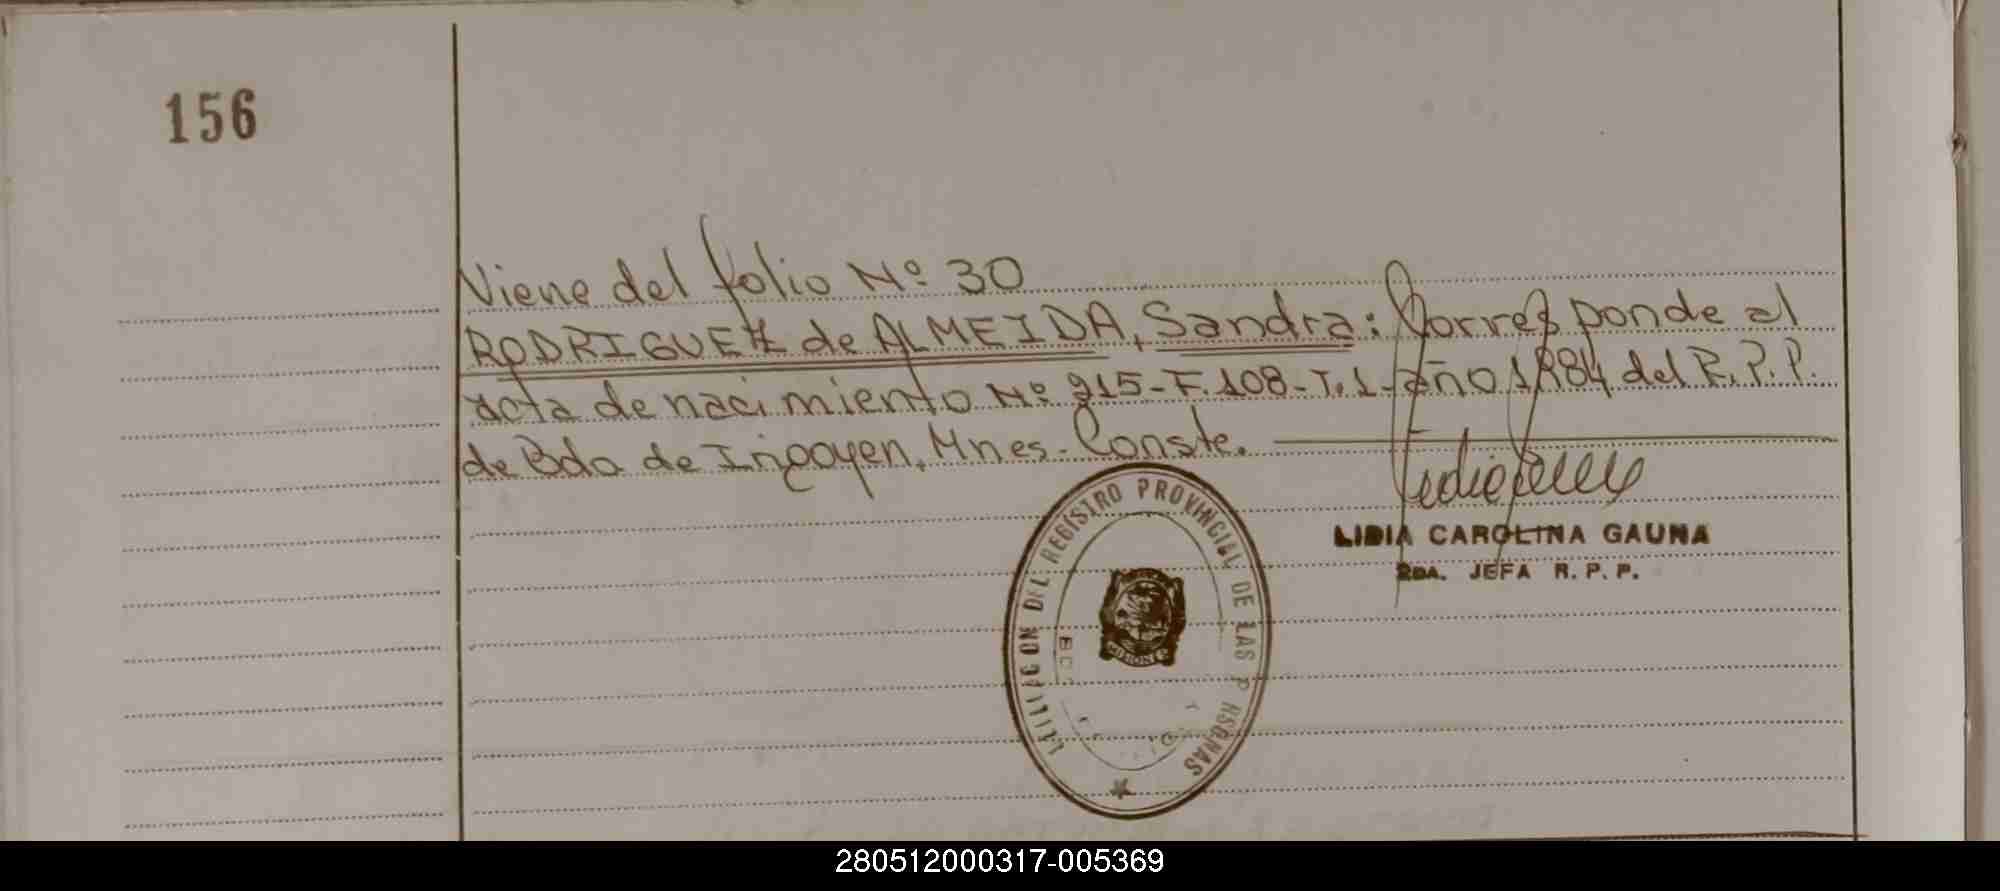 156
Viene del folio Nº 30
RODRIGUEZ de ALMEIDA, Sandra: Corresponde al
acta de nacimiento Nº 215-F.108-T.1-año 1984 del R.P.P.
de Bdo de Irigoyen, Mnes. Conste.
LIDIA CAROLINA GAUNA
2DA. JEFA R.P.P.
DEL REGISTRO PROVINCIAL DE LAS P RSONAS
MISIONES
280512000317-005369